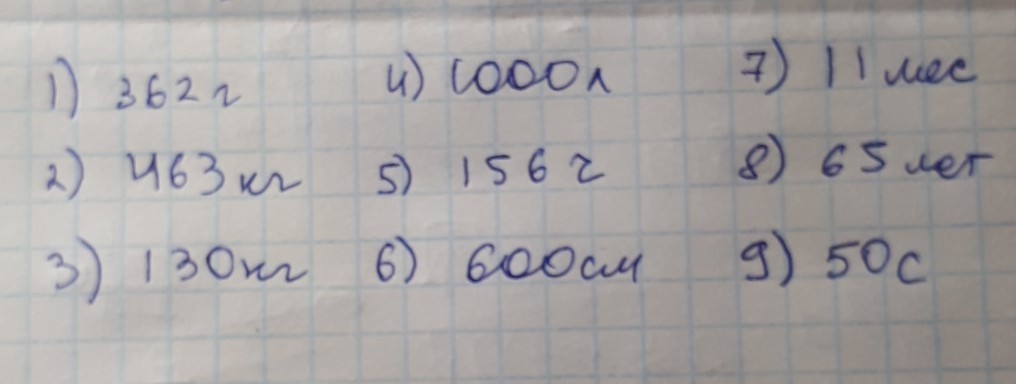 1) 362 г
4) 1000 л
7) 11 мес
2) 463 кг
5) 156 г
8) 65 лет
3) 130 кг
6) 600 см
9) 50 с